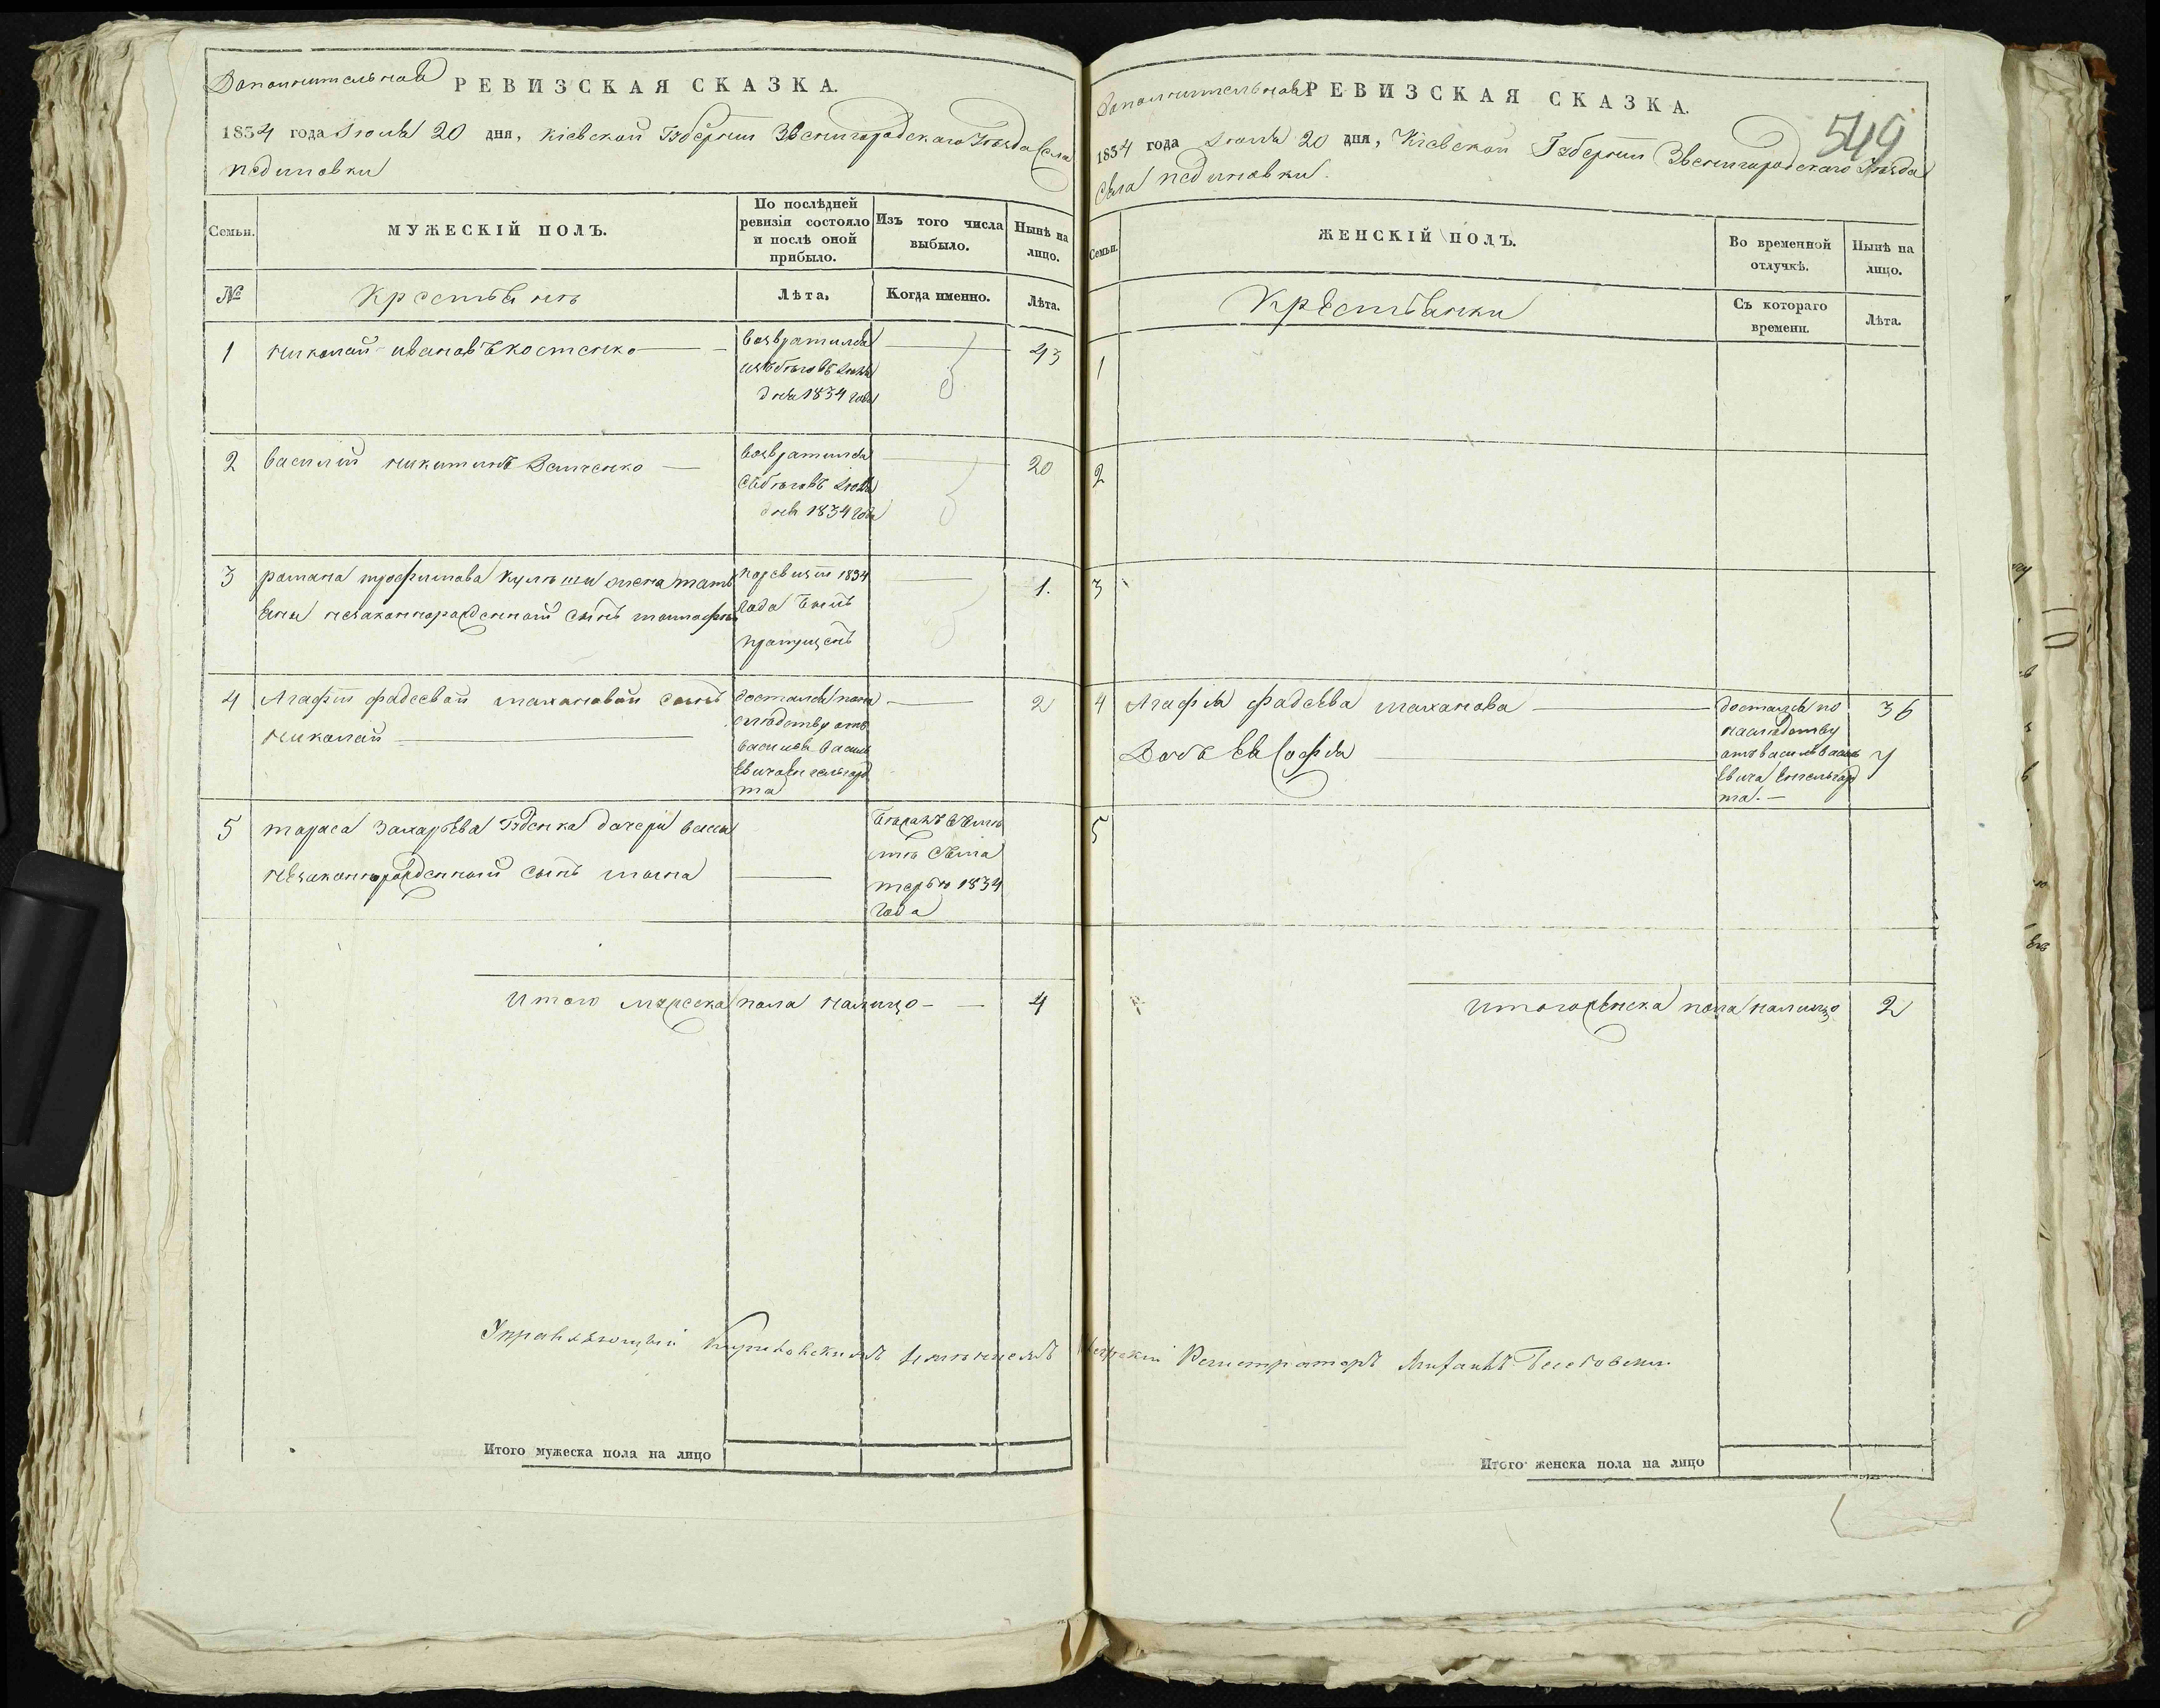 Дополнительная РЕВИЗСКАЯ СКАЗКА.
1834 года Июля 20 дня, Кіевской Губерніи Звенигородскаго Уѣзда Села
Пединовки
Семьи.
МУЖЕСКІЙ ПОЛЪ.
По послѣдней ревизіи состояло и послѣ оной прибыло.
Изъ того числа выбыло.
Нынѣ на лицо.
№
Крестьянъ
Лѣта.
Когда именно.
Лѣта.
1 Николай Ивановъ Костенко
возвратился
изъ бѣговъ Июля
дня 1834 года
43
2 Василий Никитинъ
возвратился
съ бѣговъ Июля
дня 1834 года
20
3 Романа Трофимова жена Тать
яны незаконнорожденный сынъ Тимофѣй
по ревизіи 1834
года былъ
пропущенъ
1.
4 Агафіи Фадеевой Махановой сынъ
Николай
достался по на
слѣдству отъ
Василья Василь
евича Енгельгард
та
2
5 Тараса Захарьева Гуденка дочери
незаконнорожденный сынъ
матерью 1834
года
Итого мужеска пола налицо 4
Управляющий имѣниемъ
Итого мужеска пола на лицо
Дополнительная РЕВИЗСКАЯ СКАЗКА.
549
1834 года Июля 20 дня, Кіевской Губерніи Звенигородскаго Уѣзда
Села Пединовки.
Семьи.
ЖЕНСКІЙ ПОЛЪ.
Во временной отлучкѣ.
Нынѣ на лицо.
Крестьянки
Съ котораго времени.
Лѣта.
1
2
3
4 Агафья Фадеева Маханова
Дочь Ея Софья
досталась по
наслѣдству
отъ Василья Василь
евича Енгельгард
та.
36
7
5
Итого женска пола налицо 2
Регистраторъ Михаилъ
Итого женска пола на лицо